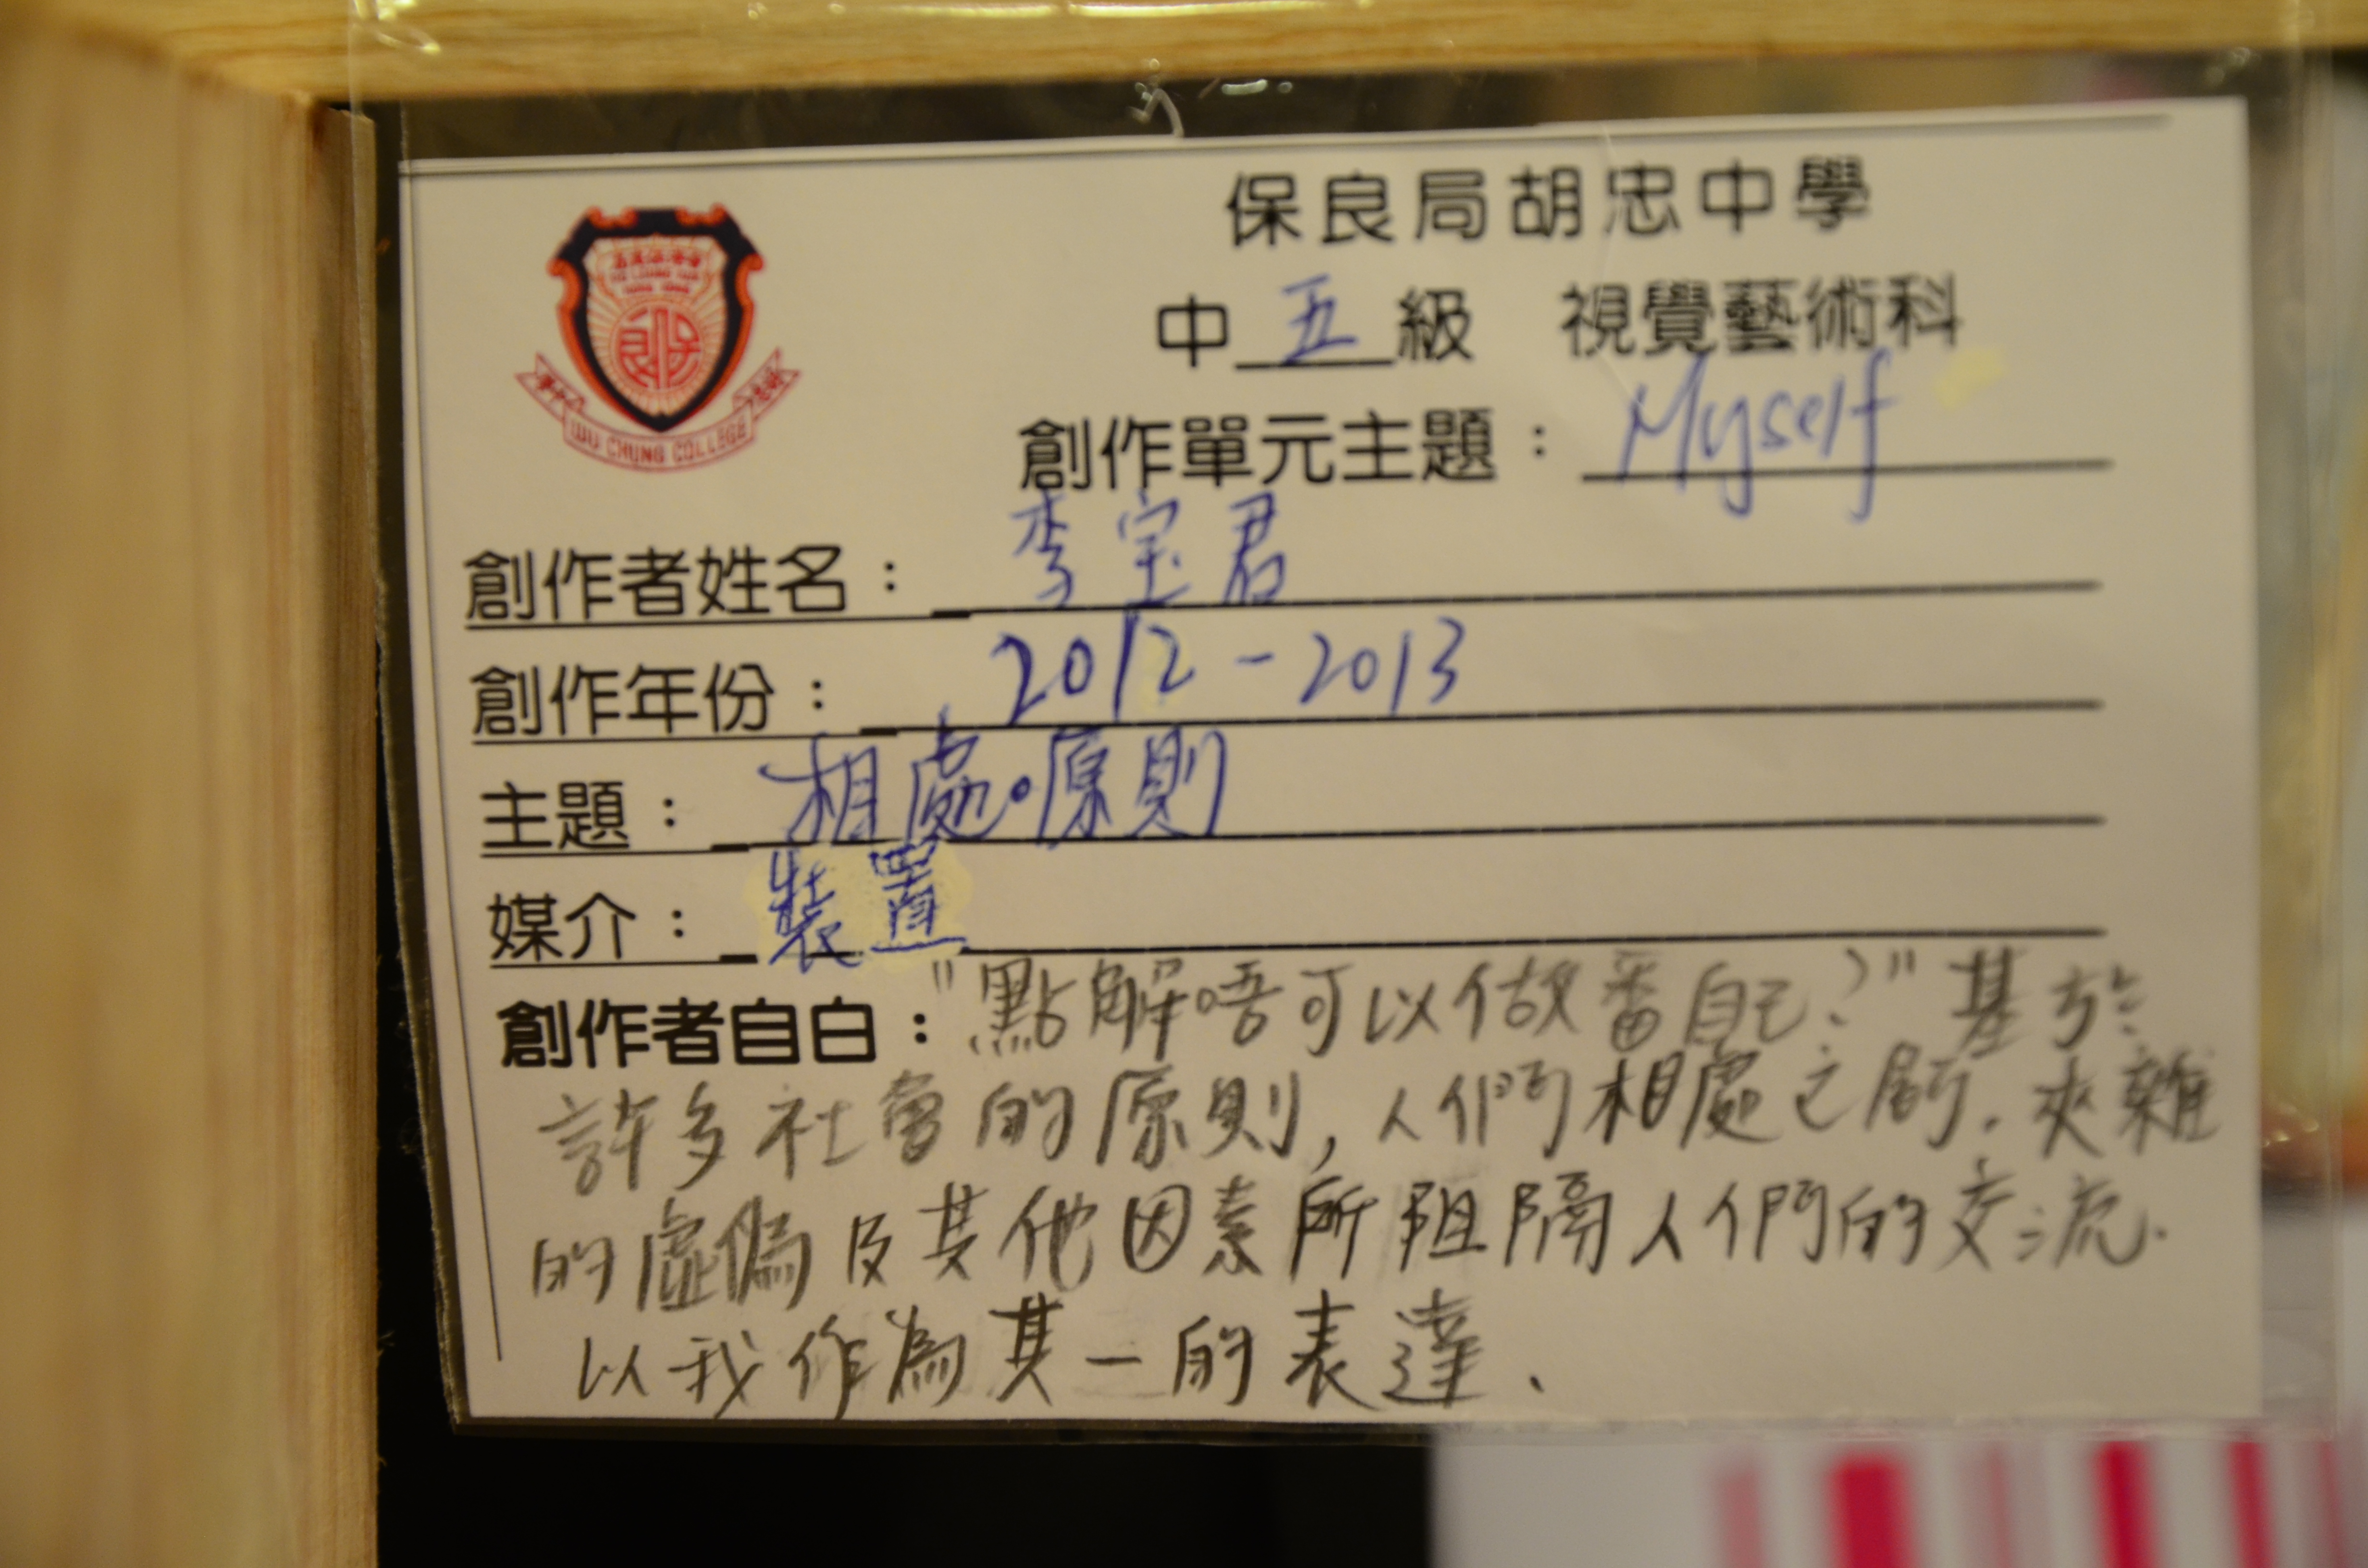 保良局胡忠中學
中五級 視覺藝術科
創作單元主題：Myself
WU CHUNG COLLEGE
創作者姓名：李宝君
創作年份：2012-2013
主題：相處•原則
媒介：裝置
創作者自白："點解唔可以做番自己？"基於
許多社會的原則，人們相處之間．夾雜
的虛偽及其他因素所阻隔人們的交流．
以我作為其一的表達．